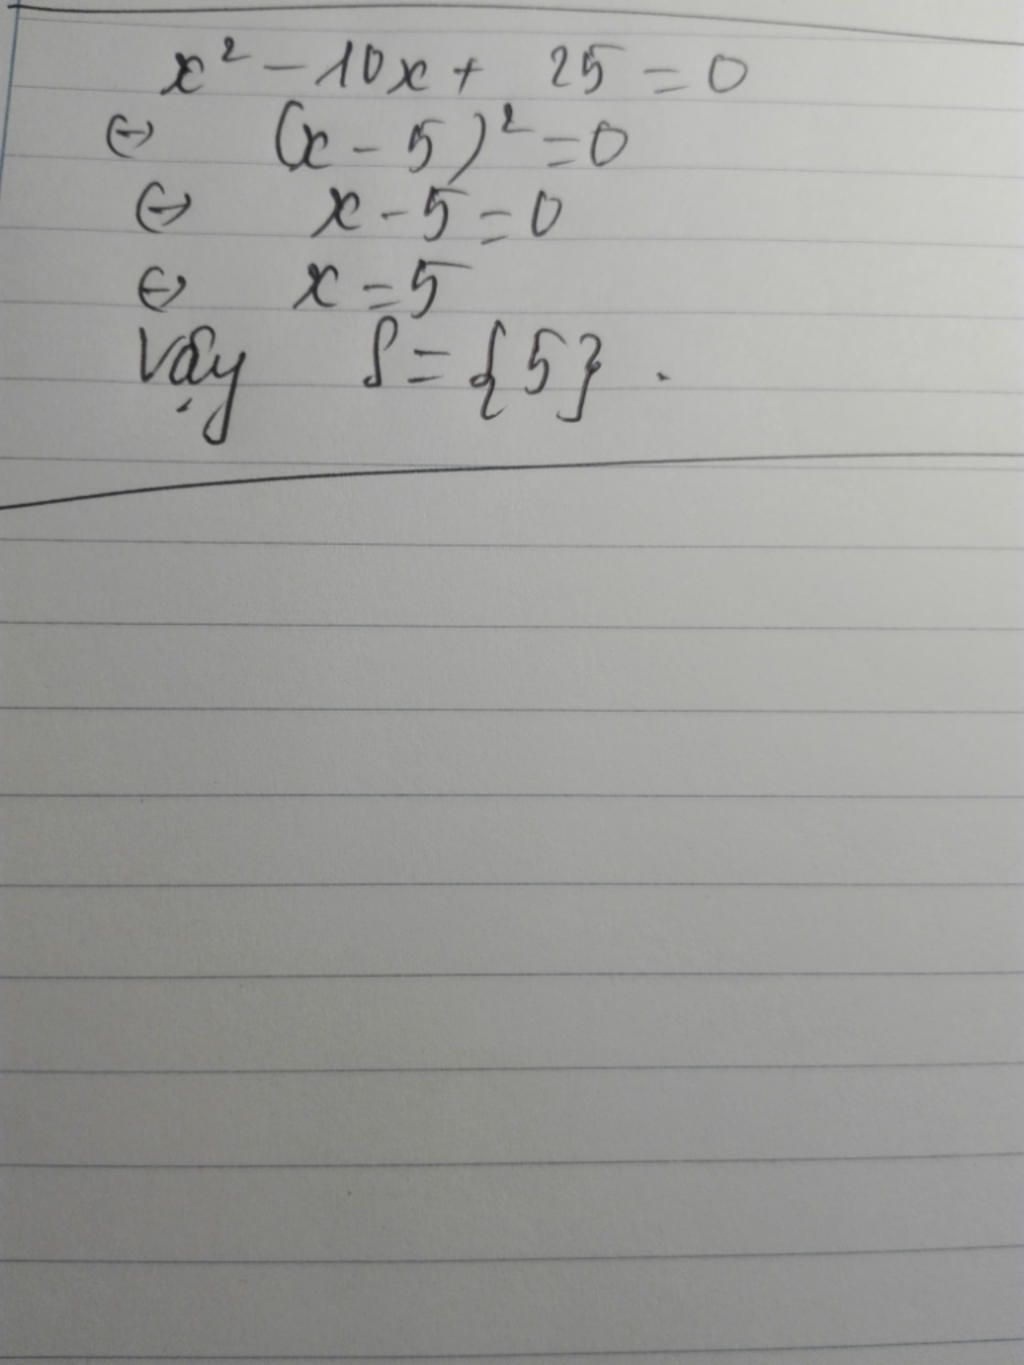 x² - 10x + 25 = 0
⇔ (x - 5)² = 0
⇔ x - 5 = 0
⇔ x = 5
Vậy S = {5}.